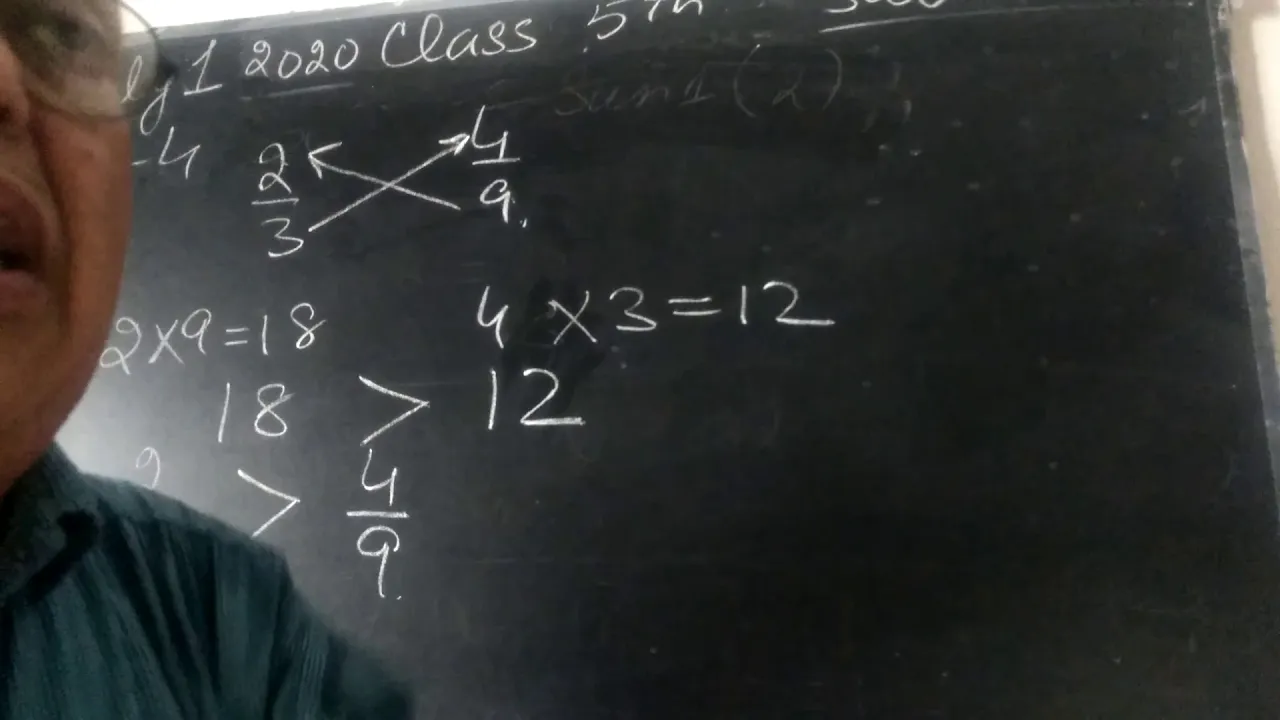 ly 1 2020 Class 5th
Sum 1 (2)
-4 2/3 4/9.
2×9=18 4×3=12
18 > 12
2 > 4/9.